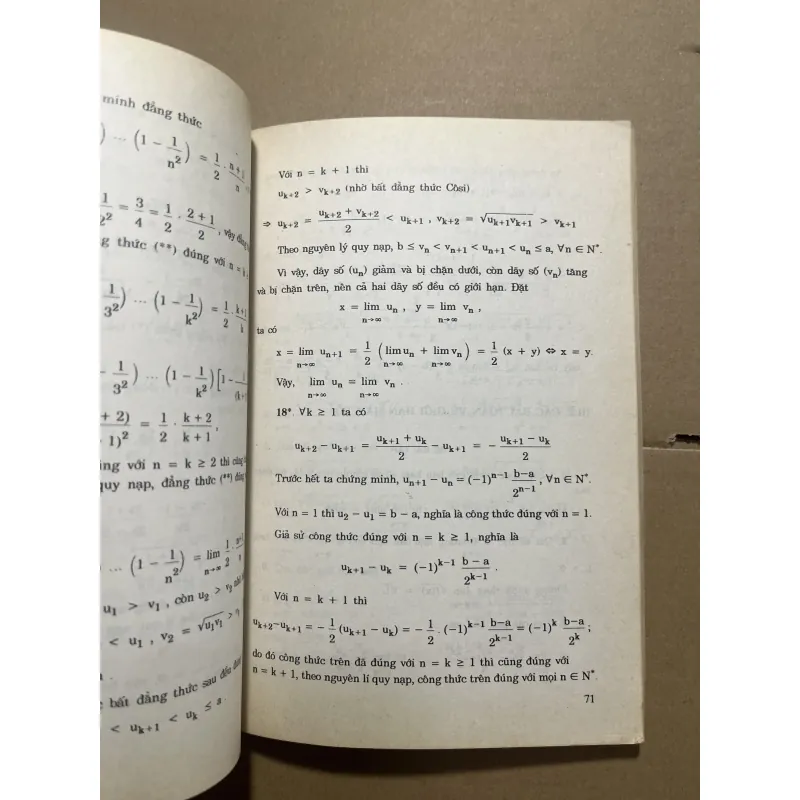 minh đẳng thức
) ... (1 − 1/n²) = 1/2 · n+1/n
1/2² = 3/4 = 1/2 · 2+1/2 , vậy đẳng
thức (**) đúng với n =
1/3²) ... (1 − 1/k²) = 1/2 · k+1/k
− 1/3²) ... (1 − 1/k²)[1 −
+ 2)/ 1)² = 1/2 · k+2/k+1 ,
với n = k ≥ 2 thì cũng
quy nạp, đẳng thức (**) đúng
... (1 − 1/n²) = lim n→∞ 1/2 ·
u₁ > v₁ , còn u₂ > v₂
< u₁ , v₂ = √u₁v₁ >
bất đẳng thức sau đều đúng
< uₖ₊₁ < uₖ ≤ a
Với n = k + 1 thì
uₖ₊₂ > vₖ₊₂ (nhờ bất đẳng thức Côsi)
⇒ uₖ₊₂ = uₖ₊₂ + vₖ₊₂/2 < uₖ₊₁ , vₖ₊₂ = √uₖ₊₁vₖ₊₁ > vₖ₊₁
Theo nguyên lý quy nạp, b ≤ vₙ < vₙ₊₁ < uₙ₊₁ < uₙ ≤ a, ∀n ∈ N*.
Vì vậy, dãy số (uₙ) giảm và bị chặn dưới, còn dãy số (vₙ) tăng
và bị chặn trên, nên cả hai dãy số đều có giới hạn. Đặt
x = lim uₙ , y = lim vₙ ,
n→∞ n→∞
ta có
x = lim uₙ₊₁ = 1/2 (lim uₙ + lim vₙ) = 1/2 (x + y) ⇔ x = y.
n→∞ n→∞ n→∞
Vậy, lim uₙ = lim vₙ .
n→∞ n→∞
18*. ∀k ≥ 1 ta có
uₖ₊₂ − uₖ₊₁ = uₖ₊₁ + uₖ/2 − uₖ₊₁ = − uₖ₊₁ − uₖ/2
Trước hết ta chứng minh, uₙ₊₁ − uₙ = (−1)ⁿ⁻¹ b−a/2ⁿ⁻¹ , ∀n ∈ N*.
Với n = 1 thì u₂ − u₁ = b − a, nghĩa là công thức đúng với n = 1.
Giả sử công thức đúng với n = k ≥ 1, nghĩa là
uₖ₊₁ − uₖ = (−1)ᵏ⁻¹ b − a/2ᵏ⁻¹ .
Với n = k + 1 thì
uₖ₊₂−uₖ₊₁ = − 1/2 (uₖ₊₁ − uₖ) = − 1/2 . (−1)ᵏ⁻¹ b−a/2ᵏ⁻¹ = (−1)ᵏ b−a/2ᵏ ;
do đó công thức trên đã đúng với n = k ≥ 1 thì cũng đúng với
n = k + 1, theo nguyên lí quy nạp, công thức trên đúng với mọi n ∈ N*.
71